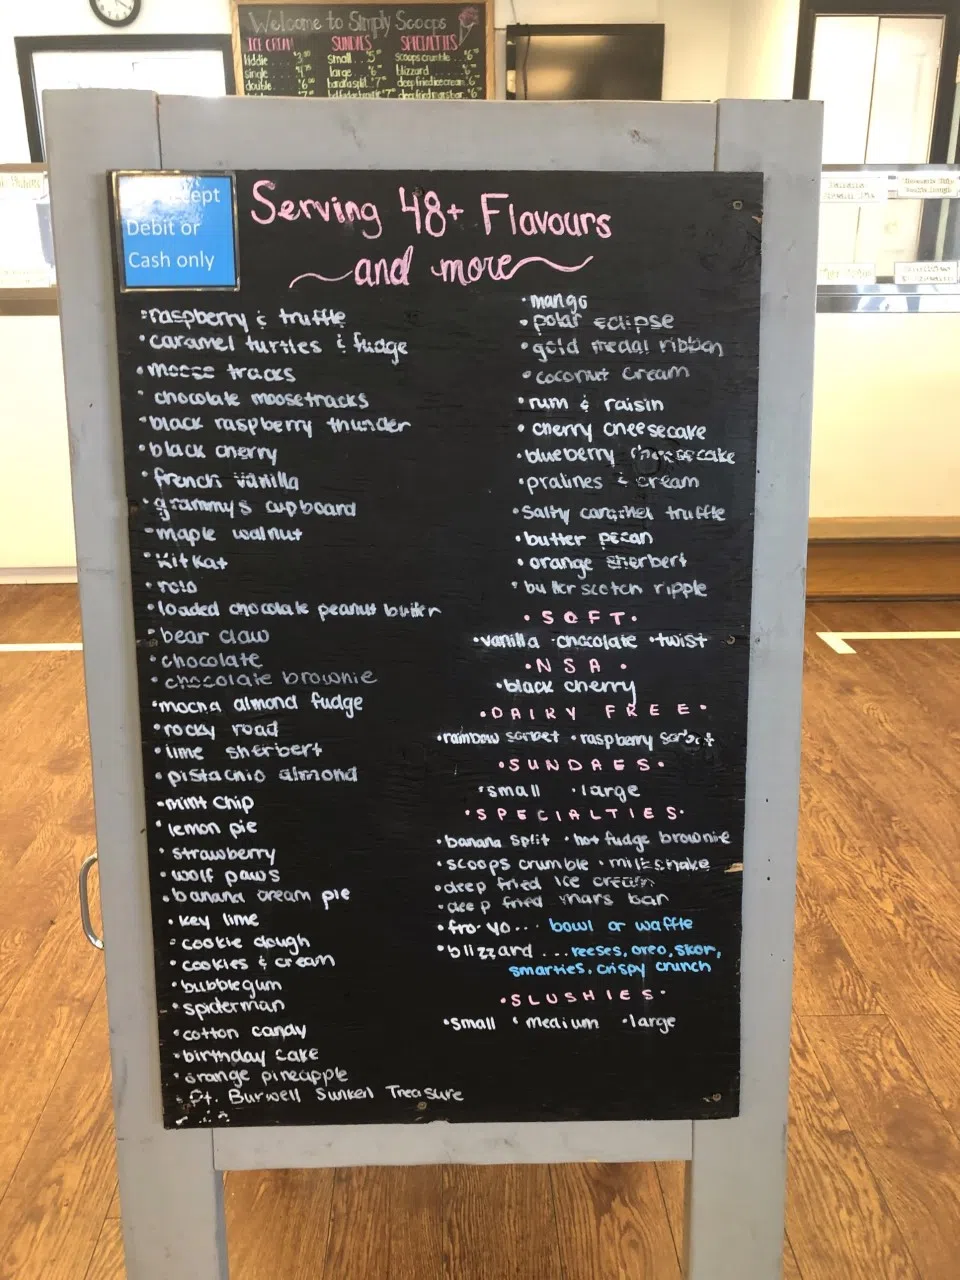 Welcome to Simply Scoops
ICE CREAM SUNDAES SPECIALTIES
kiddie
single
double
small
large
banana split
scoops crumble
blizzard
deep fried ice cream
deep fried mars bar
Debit or
Cash only
Serving 48+ Flavours
and more
•raspberry & truffle
•caramel turtles & fudge
•moose tracks
•chocolate moosetracks
•black raspberry thunder
•black cherry
•french vanilla
•grammy's cupboard
•maple walnut
•Kit Kat
•rolo
•loaded chocolate peanut butter
•bear claw
•chocolate
•chocolate brownie
•mocha almond fudge
•rocky road
•lime sherbert
•pistachio almond
•mint chip
•lemon pie
•strawberry
•wolf paws
•banana cream pie
•key lime
•cookie dough
•cookies & cream
•bubblegum
•spiderman
•cotton candy
•birthday cake
•orange pineapple
•Pt. Burwell Sunken Treasure
•mango
•polar eclipse
•gold medal ribbon
•coconut cream
•rum & raisin
•cherry cheesecake
•blueberry cheesecake
•pralines & cream
•salty caramel truffle
•butter pecan
•orange sherbert
•butterscotch ripple
•SOFT•
•vanilla •chocolate •twist
•NSA•
•black cherry
•DAIRY FREE•
•rainbow sorbet •raspberry sorbet
•SUNDAES•
•small •large
•SPECIALTIES•
•banana split •hot fudge brownie
•scoops crumble •milkshake
•deep fried ice cream
•deep fried mars bar
•fro-yo... bowl or waffle
•blizzard ...reeses, oreo, skor,
smarties, crispy crunch
•SLUSHIES•
•small •medium •large